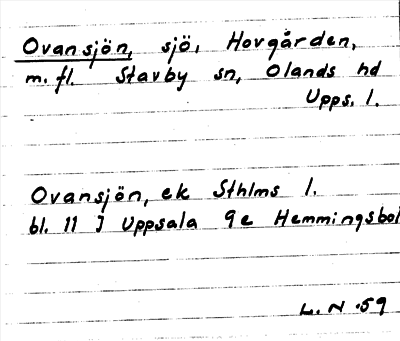 Ovansjön, sjö, Hovgården,
m. fl. Stavby sn, Olands hd
Upps. l.
Ovansjön, ek Sthlms l.
bl. 11 I Uppsala 9e Hemmingsbol
L. N. 59